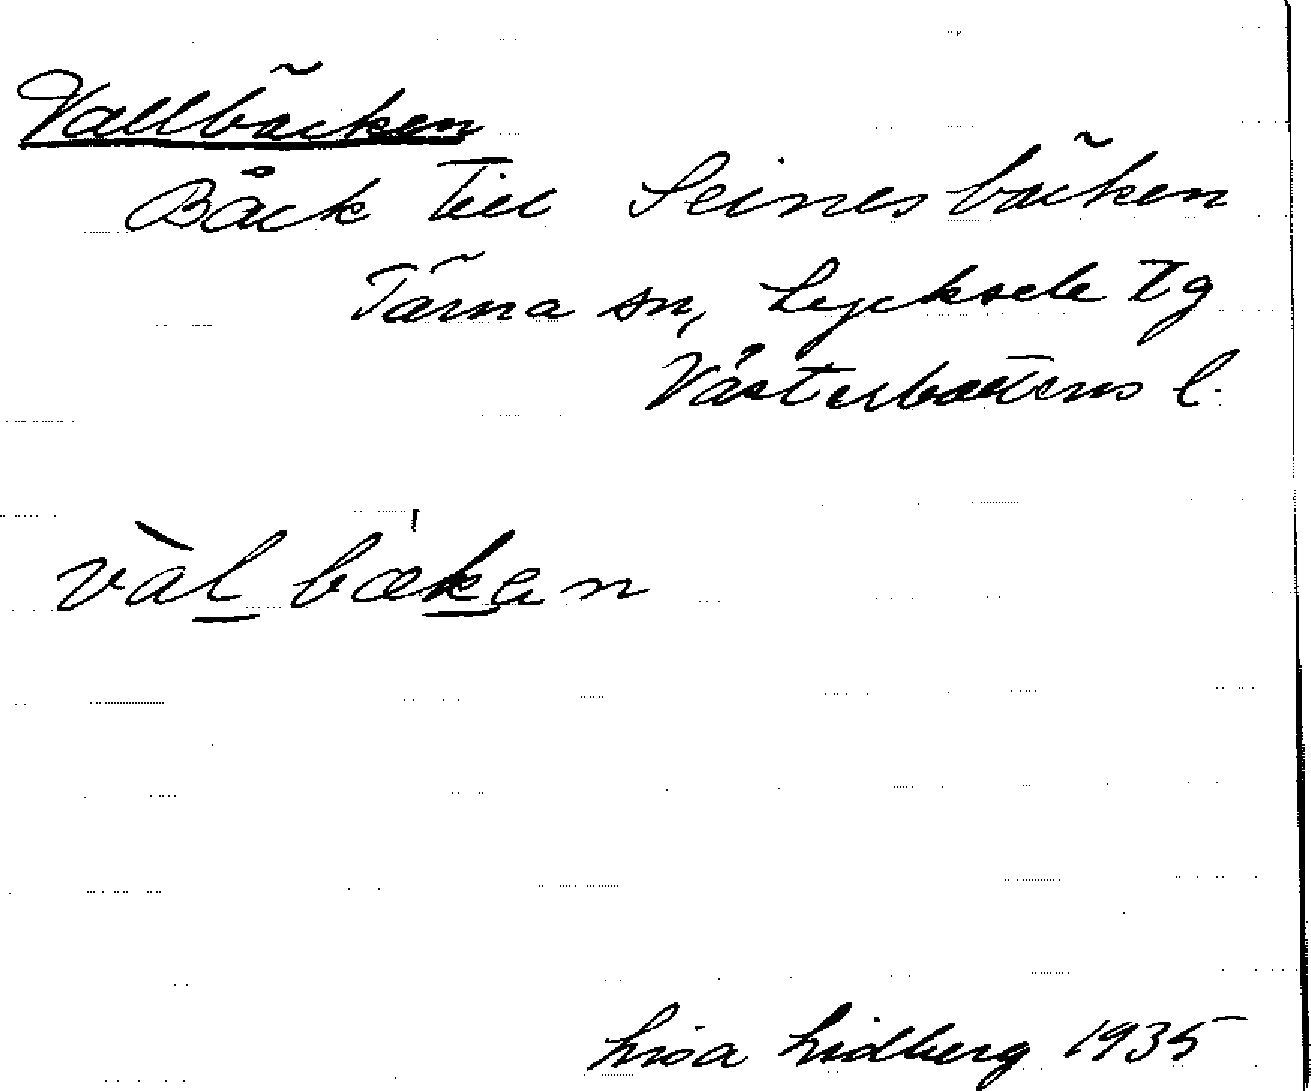 Vallbäcken
Bäck till Seinesbäcken
Tärna sn, Lycksele tg
Västerbottens l.
vàl bækan
Lisa Lidberg 1935